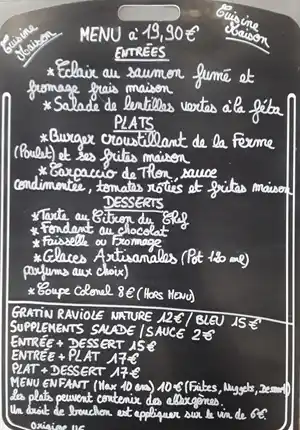 Cuisine Maison
MENU à 19,90€
Cuisine Maison
ENTRÉES
* Eclair au saumon fumé et
fromage frais maison
* Salade de lentilles vertes à la féta
PLATS
* Burger croustillant de la Ferme
(Poulet) et ses frites maison
* Carpaccio de Thon, sauce
condimentée, tomates rôties et frites maison
DESSERTS
* Tarte au Citron du Chef
* Fondant au chocolat
* Faisselle ou Fromage
* Glaces Artisanales (Pot 120 ml)
parfums aux choix)
* Coupe Colonel 8€ (HORS MENU)
GRATIN RAVIOLE NATURE 12€ / BLEU 15€
SUPPLEMENTS SALADE / SAUCE 2€
ENTRÉE + DESSERT 15€
ENTRÉE + PLAT 17€
PLAT + DESSERT 17€
MENU ENFANT (Max 10 ans) 10€ (Frites, Nuggets, Dessert)
Les plats peuvent contenir des allergènes.
Un droit de bouchon est appliquer sur le vin de 6€.
Origine UE